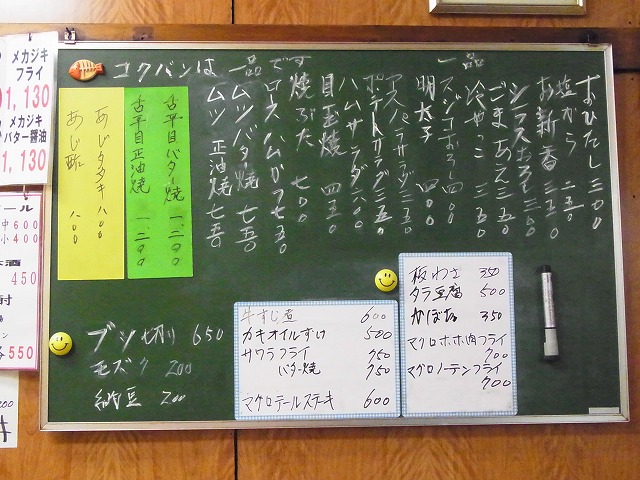 コクバンは一品です
一品
おひたし 三〇〇
塩から 二五〇
お新香 三五〇
シラスおろし 三〇〇
ごまあえ 三五〇
冷やっこ 三〇〇
スジコおろし 四〇〇
明太子 四〇〇
アスパラサラダ 三五〇
ポテトサラダ 三五〇
ハムサラダ 六〇〇
目玉焼 四五〇
焼ぶた 七〇〇
ロースハムカツ 七五〇
ムツバタ焼 七五〇
ムツ正油焼 七五〇
舌平目バター焼 一、二〇〇
舌平目正油焼 一、二〇〇
あじタタキ 八〇〇
あじ酢 八〇〇
ブツ切り 650
モズク 200
納豆 200
牛すじ煮 600
カキオイルずけ 500
サワラフライ 750
バター焼 750
マグロテールステーキ 600
板わさ 350
タラ豆腐 500
かぼちゃ 350
マグロホホ肉フライ
700
マグロノーテンフライ
700
メカジキ
フライ
1,130
メカジキ
バター醤油
1,130
ール
中 600
小 400
酒
450
酎
550